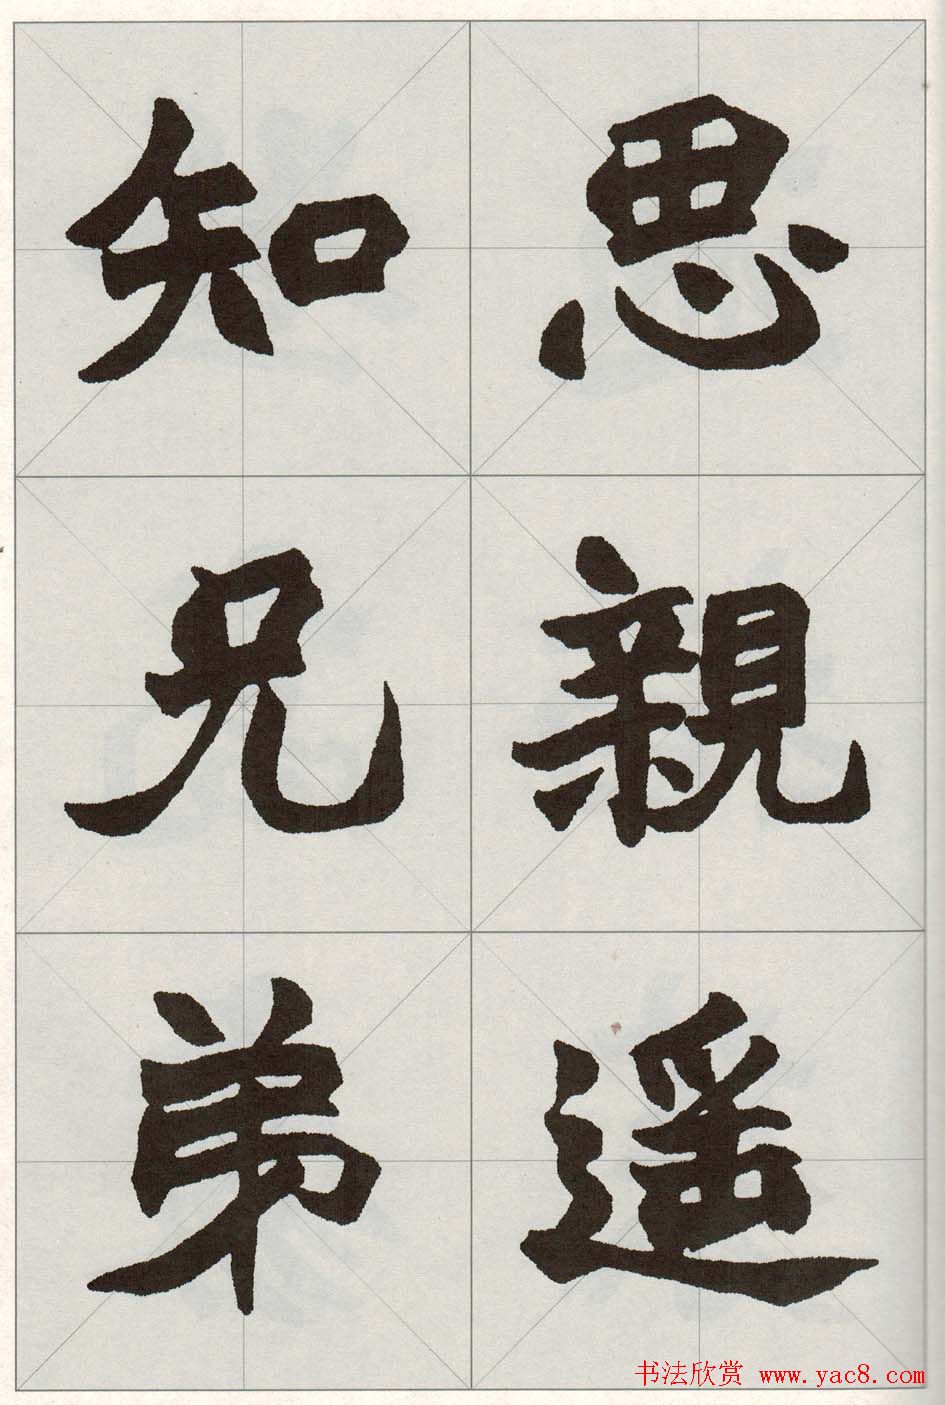 思親遥
知兄弟
书法欣赏 www.yac8.com